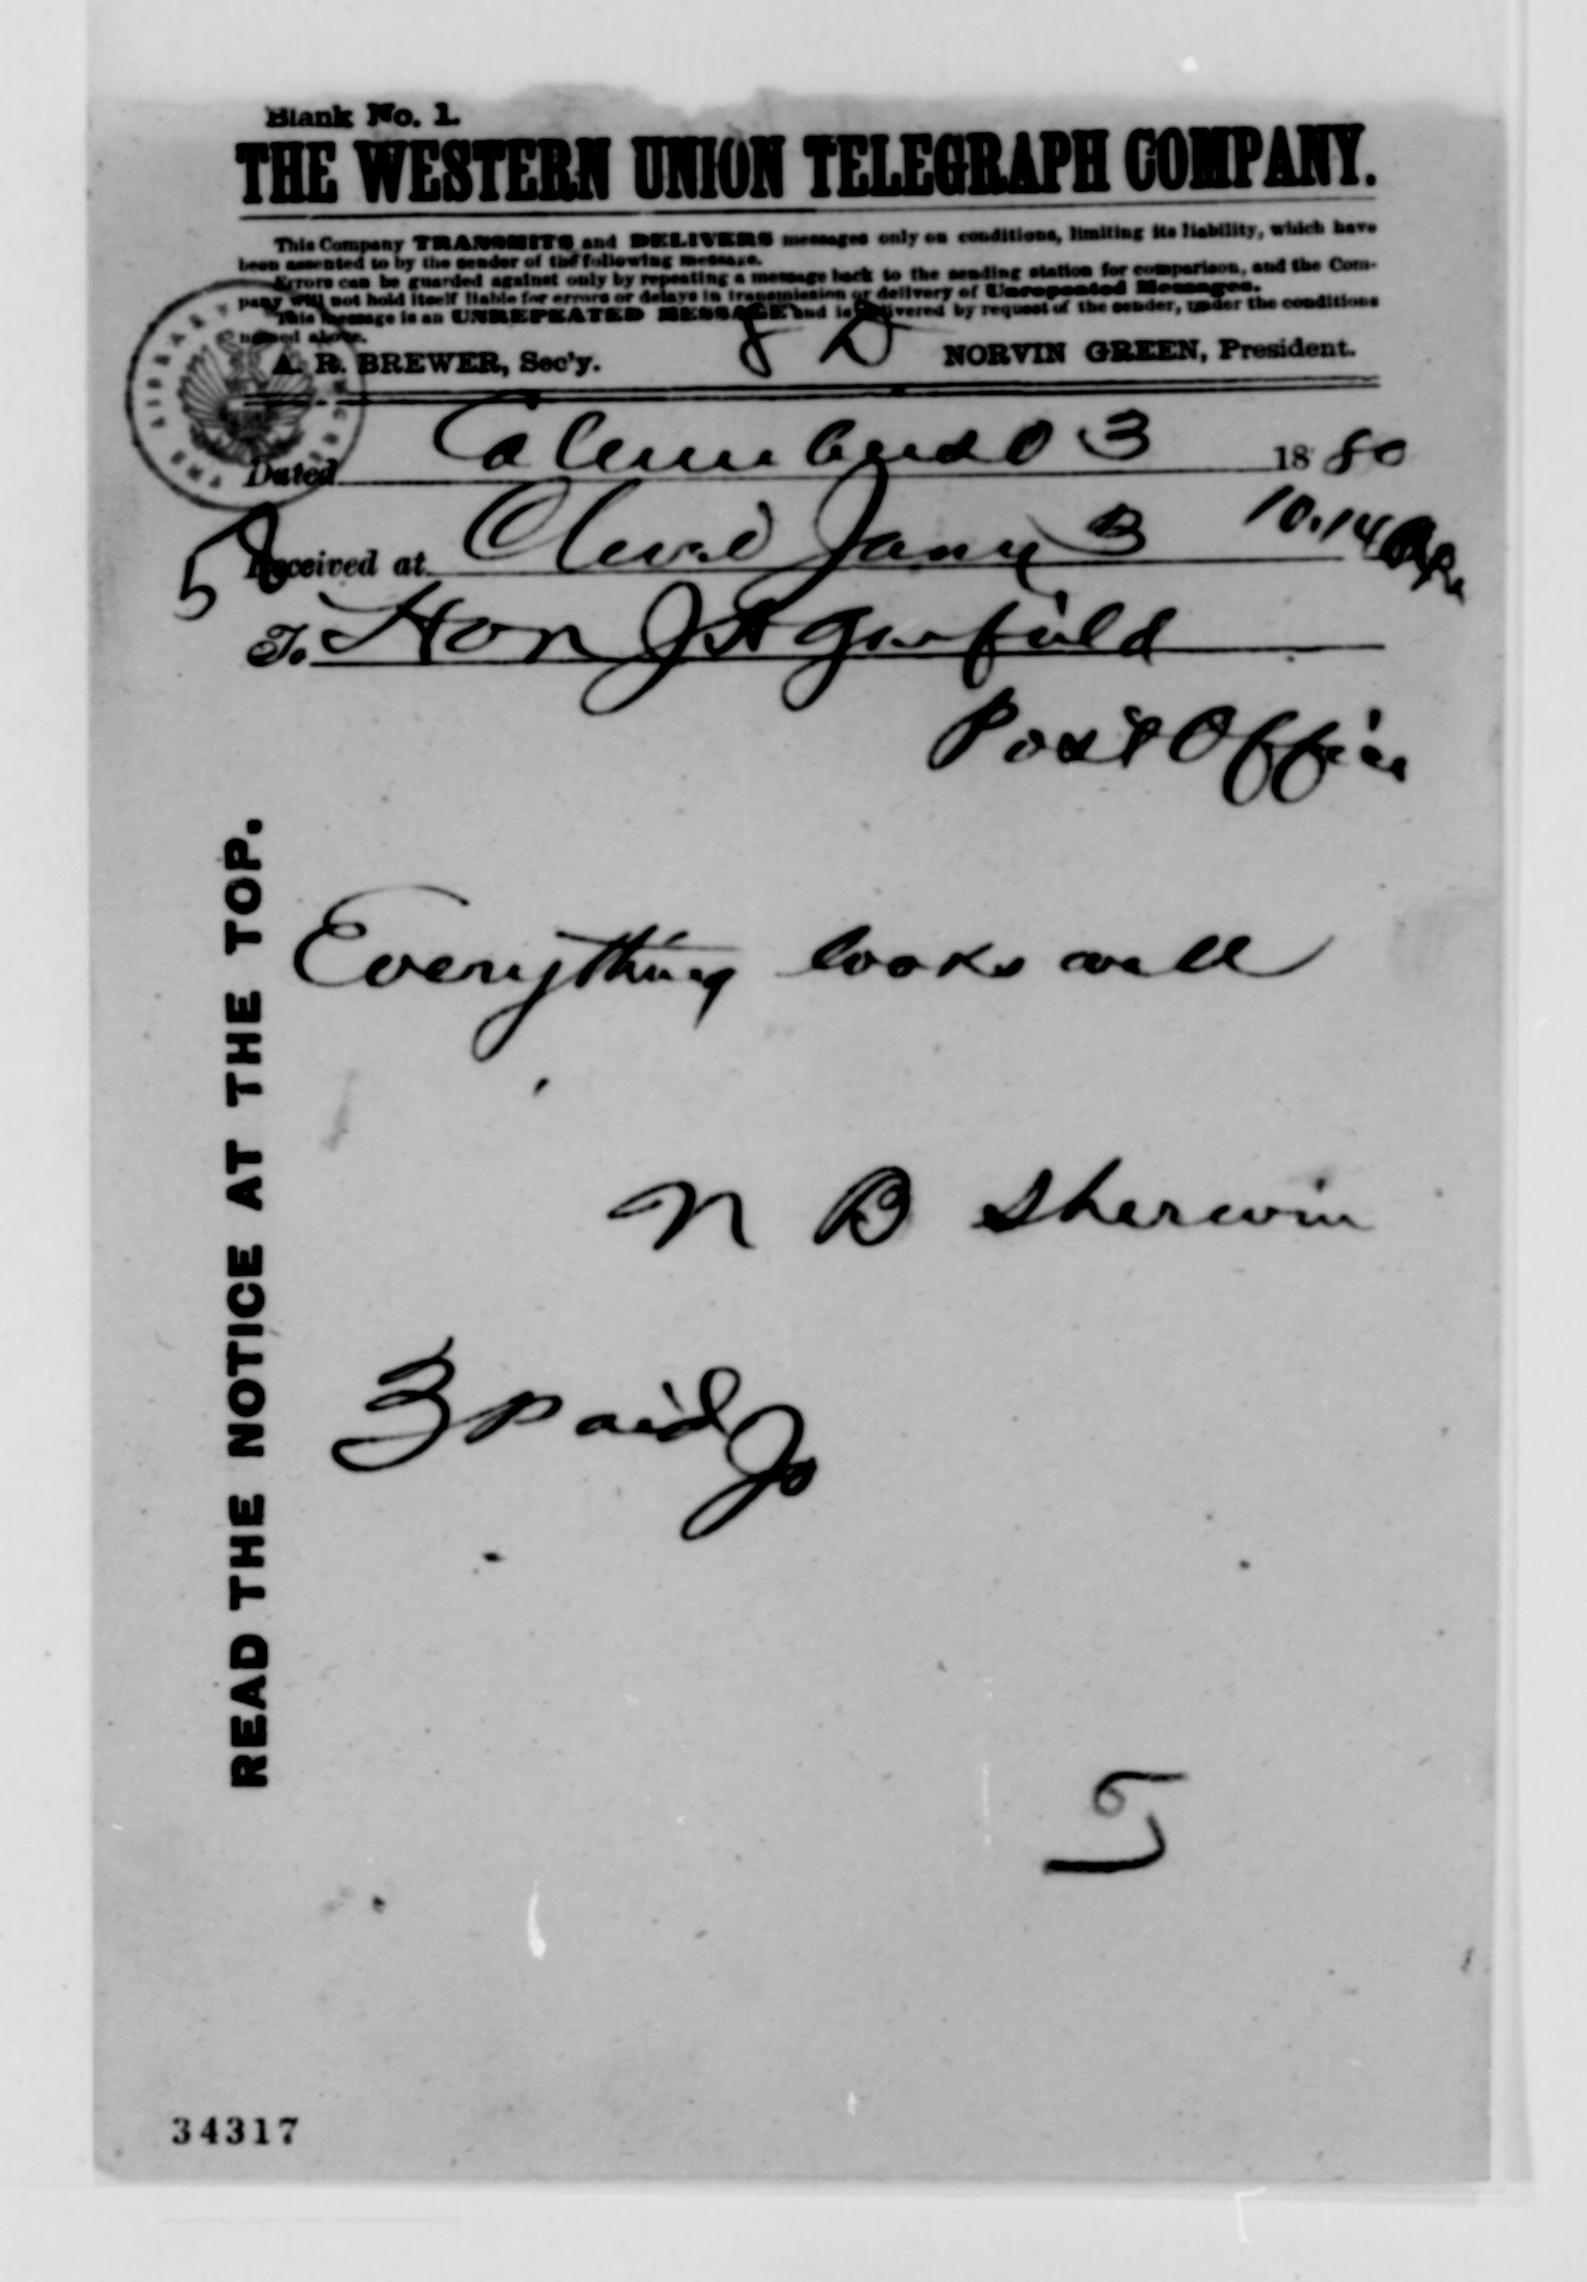 Blank No. 1.
THE WESTERN UNION TELEGRAPH COMPANY.
This Company TRANSMITS and DELIVERS messages only on conditions, limiting its liability, which have
been assented to by the sender of the following message.
Errors can be guarded against only by repeating a message back to the sending station for comparison, and the Com-
pany will not hold itself liable for errors or delays in transmission or delivery of Unrepeated Messages.
This message is an UNREPEATED MESSAGE and is delivered by request of the sender, under the conditions
named above.
8 D
A. R. BREWER, Sec'y. NORVIN GREEN, President.
Dated Columbus O 3 1880
Received at Cleved Jany 3 10.14
58
To Hon J A Garfield
Post Office
READ THE NOTICE AT THE TOP.
Everything looks well
N B Sherwin
3 paid Jo
5
34317